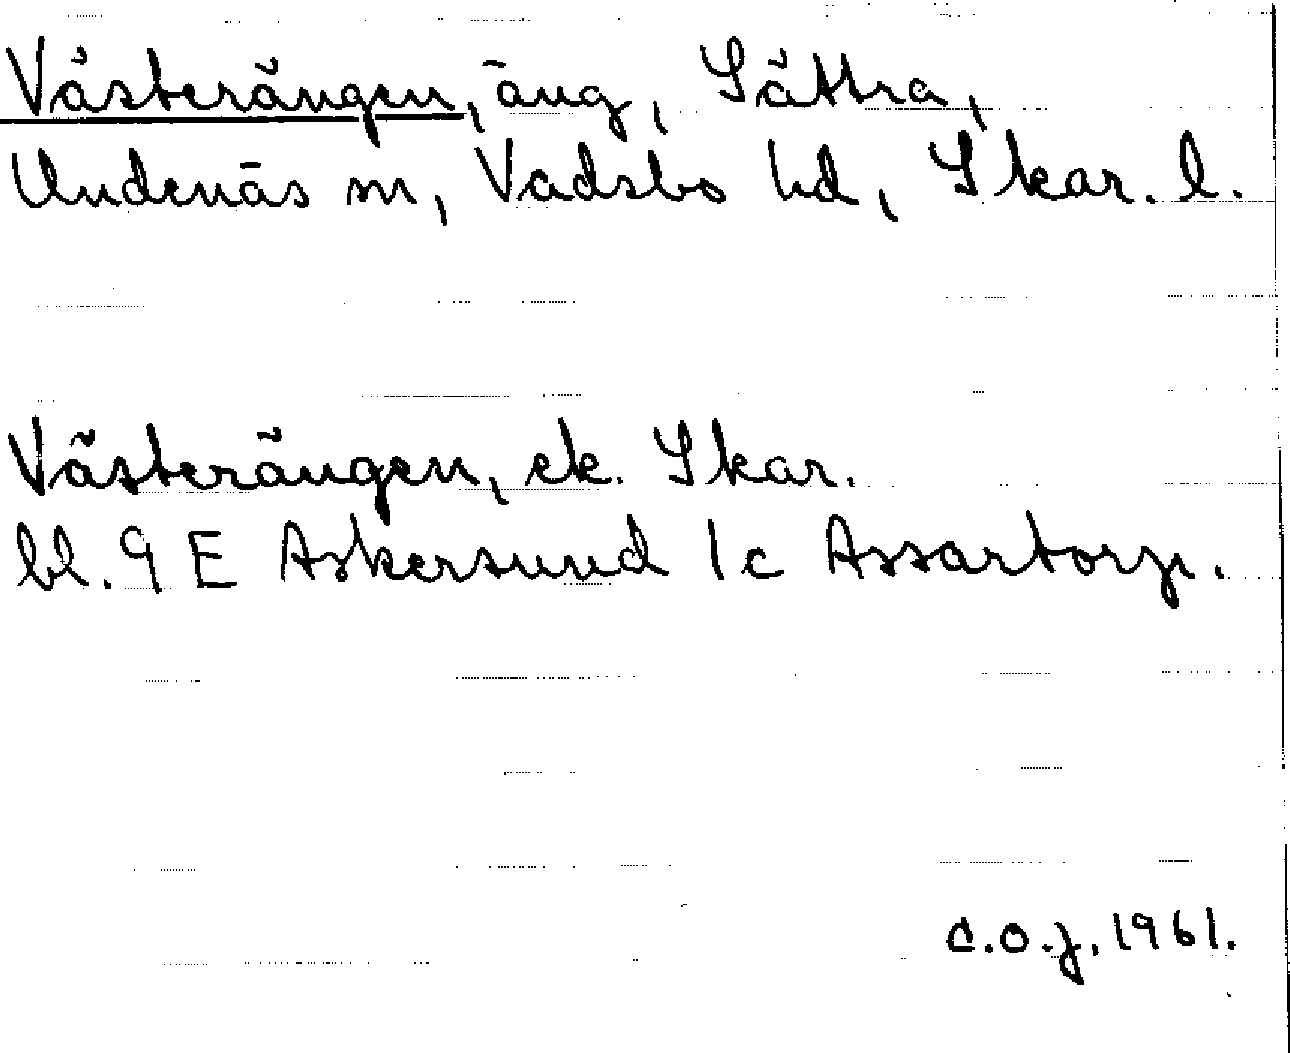 Västerängen, äng, Sättra,
Undenäs sn, Vadsbo hd, Skar. l.
Västerängen, ek. Skar.
bl. 9 E Askersund 1c Assartorp.
C.O.J. 1961.